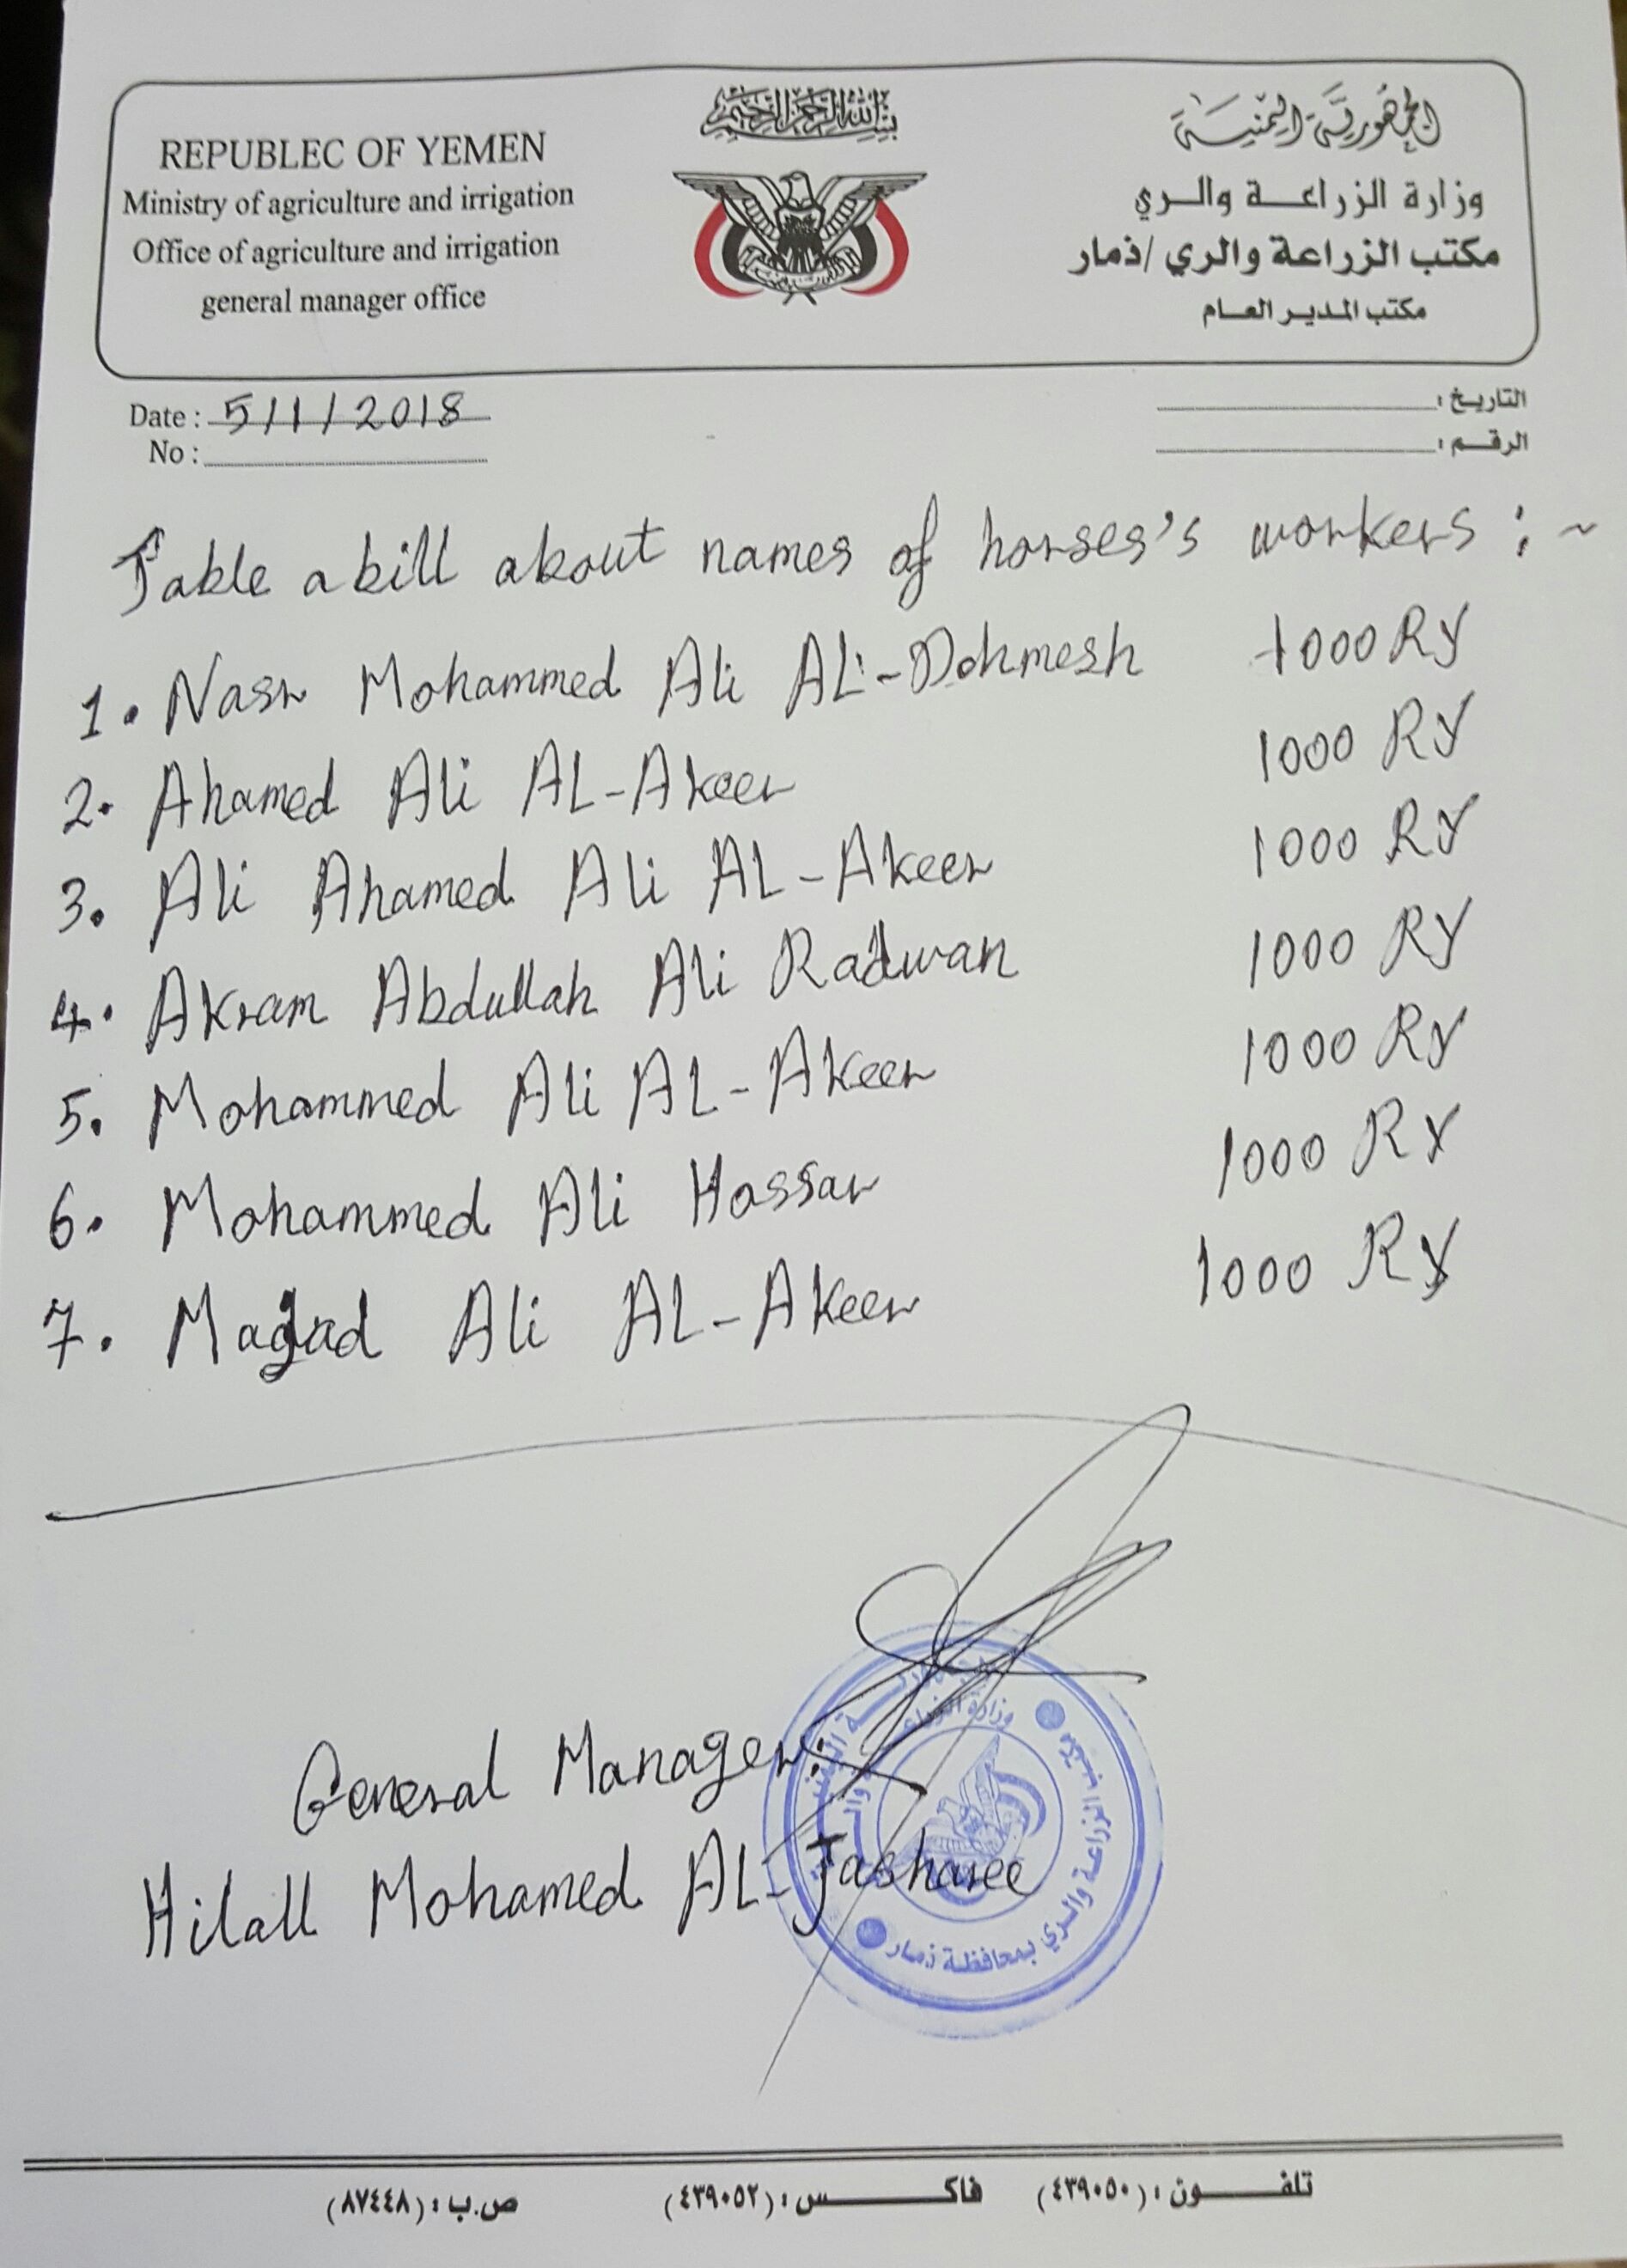 REPUBLEC OF YEMEN
Ministry of agriculture and irrigation
Office of agriculture and irrigation
general manager office
بسم الله الرحمن الرحيم
الجمهورية اليمنية
وزارة الزراعة والري
مكتب الزراعة والري / ذمار
مكتب المدير العام
Date : 5/1/2018
No :
التاريخ :
الرقم :
Table a bill about names of horses's workers : ~
1. Nasr Mohammed Ali AL-Dohmesh 1000 RY
2. Ahamed Ali AL-Akeer 1000 RY
3. Ali Ahamed Ali AL-Akeer 1000 RY
4. Akram Abdullah Ali Radwan 1000 RY
5. Mohammed Ali AL-Akeer 1000 RY
6. Mohammed Ali Hassar 1000 RY
7. Magad Ali AL-Akeer 1000 RY
General Manager:
Hilall Mohamed AL-Jasharee
وزارة الزراعة والري
الزراعة والري بمحافظة ذمار
تلفون : (٤٣٩٠٥٠) فاكس : (٤٣٩٠٥٢) ص.ب : (٨٧٤٤٨)